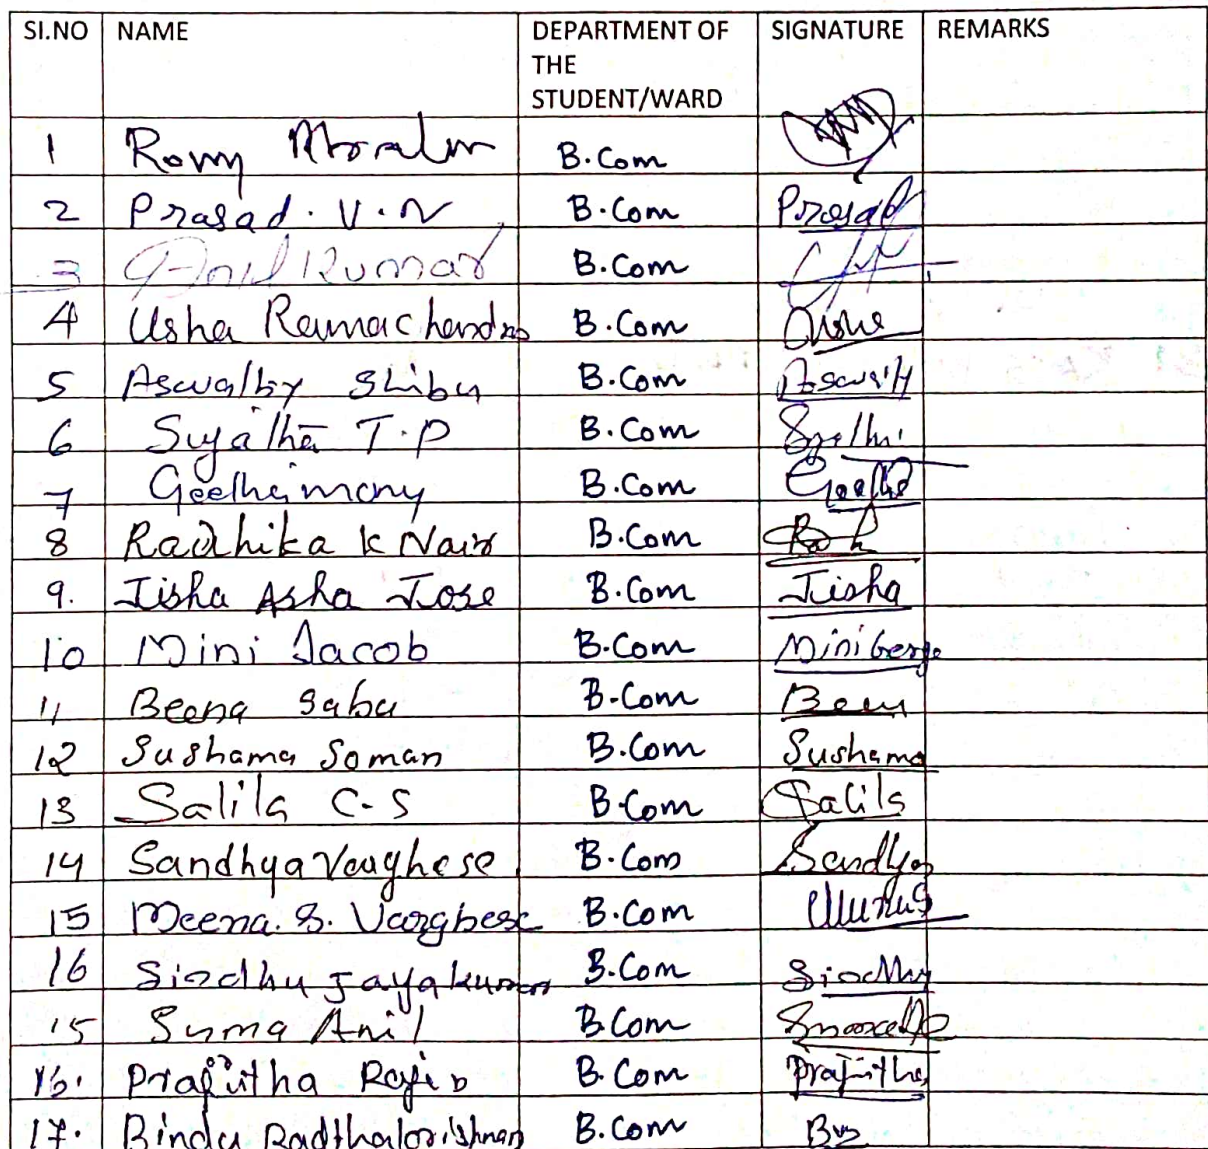 SI.NO NAME DEPARTMENT OF THE STUDENT/WARD SIGNATURE REMARKS
1 Romy B.Com
2 Prasad. V. N B.Com Prasad
3 Anil Kumar B.Com
4 Usha Ramachandran B.Com Usha
5 Aswathy Shibu B.Com Aswathy
6 Sujatha T.P B.Com
7 Geethamony B.Com Geetha
8 Radhika K Nair B.Com
9. Jisha Asha Jose B.Com Jisha
10 Mini Jacob B.Com Mini George
11 Beena Sabu B.Com Been
12 Sushama Soman B.Com Sushama
13 Salila C-S B.Com Salila
14 Sandhya Varughese B.Com Sandhya
15 Meena. S. Varghese B.Com
16 Sindhu Jayakumar B.Com Sindhu
15 Suma Anil B.Com
16. Prajitha Rajib B.Com Prajitha
17. Bindu Radhakrishnan B.Com